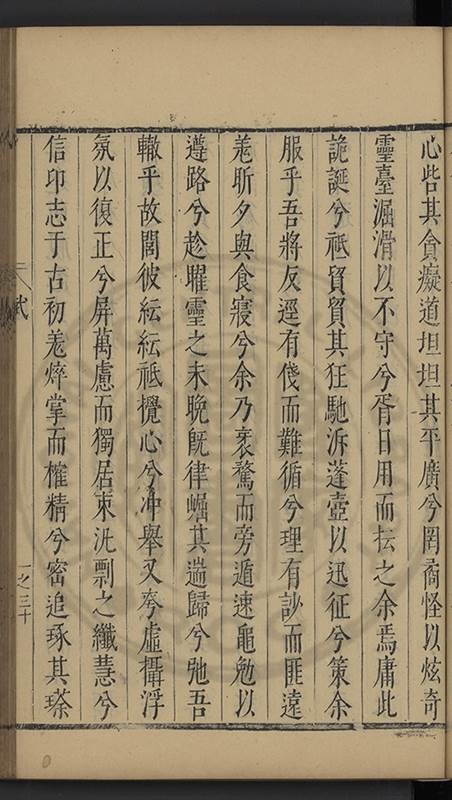 心呰其貪癡道坦坦其平廣兮罔矞怪以炫奇
靈臺漏滑以不守兮胥日用而抎之余焉庸此
詭誕兮祗貿貿其狂馳泝蓬壺以迅征兮策余
服乎吾將反逕有俴而難循兮理有訬而匪遠
羌昕夕與食寢兮余乃袤騖而旁遁速黽勉以
遵路兮趁曜靈之未晩旣律崛其遄歸兮弛吾
轍乎故閭彼紜紜祗攪心兮冲舉又夸虛攝浮
氛以復正兮屏萬慮而獨居朿汎剽之纖慧兮
信印志于古初羌焠掌而榷精兮密追琢其瑹
弍
一之三十